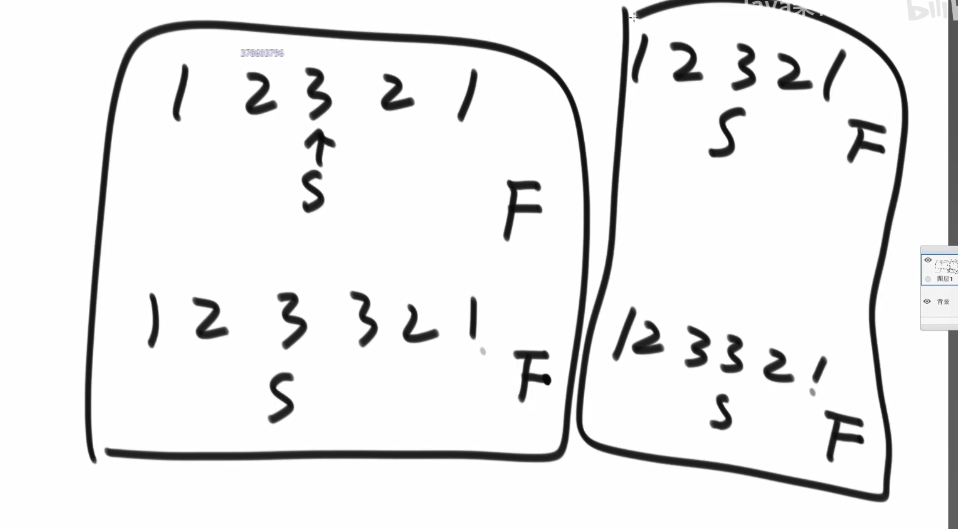 370603796
1 2 3 2 1
S
F
1 2 3 3 2 1
S
F
1 2 3 2 1
S
F
1 2 3 3 2 1
S
F
图层1
背景